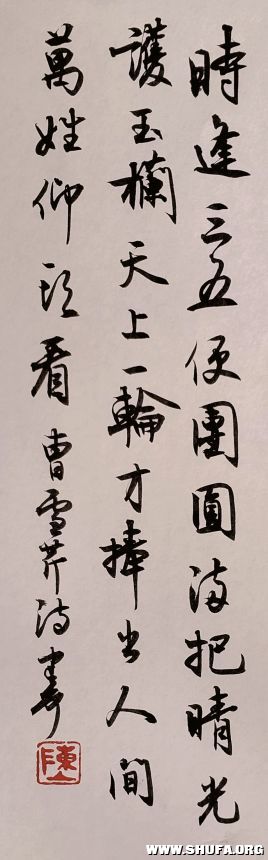 時逢三五便團圓滿把晴光
護玉欄天上一輪才捧出人間
萬姓仰頭看曹雪芹詩
陳
WWW.SHUFA.ORG